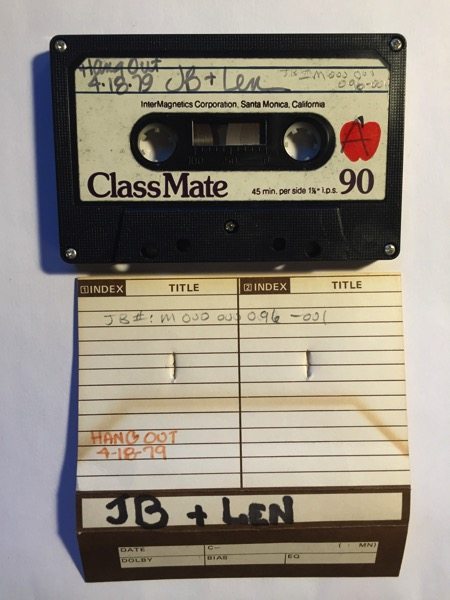 Hang Out
4-18-79
JB + Len
JB#: M 000 000
096-001
InterMagnetics Corporation, Santa Monica, California
A
100 50 0
ClassMate
45 min. per side 1⅞" i.p.s.
90
1 INDEX TITLE 2 INDEX TITLE
JB#: M 000 000 096 -001
HANG OUT
4-18-79
JB + LEN
DATE C– ( : MN)
DOLBY BIAS EQ